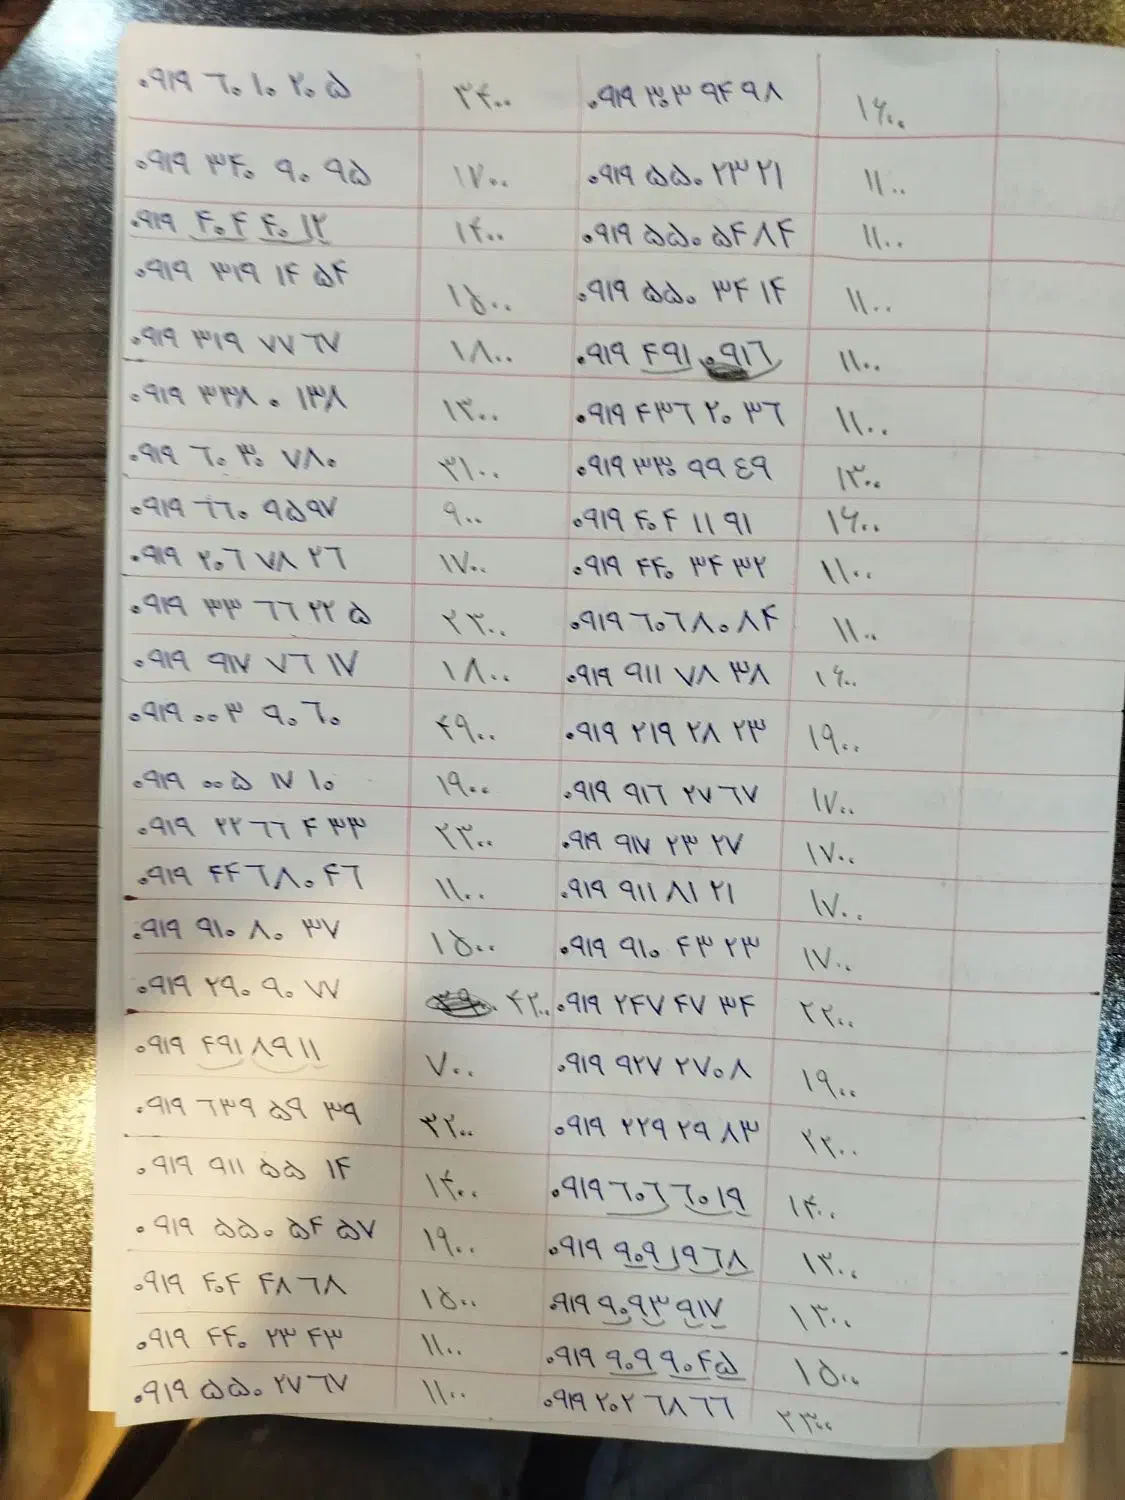 ۰۹۱۹ ۶۰ ۱۰ ۲۰ ۵ ۲۴۰۰ ۰۹۱۹ ۳۰۳ ۹۴ ۹۸ ۱۶۰۰
۰۹۱۹ ۳۴۰ ۹۰ ۹۵ ۱۷۰۰ ۰۹۱۹ ۵۵۰ ۲۳ ۲۱ ۱۱۰۰
۰۹۱۹ ۴۰۴ ۴۰ ۱۲ ۱۴۰۰ ۰۹۱۹ ۵۵۰ ۵۴ ۸۴ ۱۱۰۰
۰۹۱۹ ۳۱۹ ۱۴ ۵۴ ۱۵۰۰ ۰۹۱۹ ۵۵۰ ۳۴ ۱۴ ۱۱۰۰
۰۹۱۹ ۳۱۹ ۷۷ ۶۷ ۱۸۰۰ ۰۹۱۹ ۴۹۱ ۰۹۱۶ ۱۱۰۰
۰۹۱۹ ۳۳۸ ۰ ۱۳۸ ۱۳۰۰ ۰۹۱۹ ۴۳۶ ۲۰ ۳۶ ۱۱۰۰
۰۹۱۹ ۶۰ ۳۰ ۷۸۰ ۳۱۰۰ ۰۹۱۹ ۳۳۰ ۹۹ ۴۹ ۱۳۰۰
۰۹۱۹ ۶۶۰ ۹۵۹۷ ۹۰۰ ۰۹۱۹ ۴۰۴ ۱۱ ۹۱ ۱۶۰۰
۰۹۱۹ ۲۰۶ ۷۸ ۲۶ ۱۷۰۰ ۰۹۱۹ ۴۴۰ ۳۴ ۳۲ ۱۱۰۰
۰۹۱۹ ۳۳ ۶۶ ۲۲ ۵ ۲۳۰۰ ۰۹۱۹ ۶۰۶ ۸۰ ۸۴ ۱۱۰۰
۰۹۱۹ ۹۱۷ ۷۶ ۱۷ ۱۸۰۰ ۰۹۱۹ ۹۱۱ ۷۸ ۳۸ ۱۶۰۰
۰۹۱۹ ۰۰۳ ۹۰ ۶۰ ۴۹۰۰ ۰۹۱۹ ۲۱۹ ۲۸ ۲۳ ۱۹۰۰
۰۹۱۹ ۰۰۵ ۱۷ ۱۰ ۱۹۰۰ ۰۹۱۹ ۹۱۶ ۲۷ ۶۷ ۱۷۰۰
۰۹۱۹ ۲۲ ۶۶ ۴ ۳۳ ۲۳۰۰ ۰۹۱۹ ۹۱۷ ۲۳ ۲۷ ۱۷۰۰
۰۹۱۹ ۴۴ ۶۸۰ ۴۶ ۱۱۰۰ ۰۹۱۹ ۹۱۱ ۸۱ ۲۱ ۱۷۰۰
۰۹۱۹ ۹۱۰ ۸۰ ۳۷ ۱۵۰۰ ۰۹۱۹ ۹۱۰ ۴۳ ۲۳ ۱۷۰۰
۰۹۱۹ ۲۹۰ ۹۰ ۷۷ ۴۲۰۰ ۰۹۱۹ ۲۴۷ ۴۷ ۳۴ ۲۲۰۰
۰۹۱۹ ۴۹۱ ۸۹ ۱۱ ۷۰۰ ۰۹۱۹ ۹۲۷ ۲۷۰۸ ۱۹۰۰
۰۹۱۹ ۶۳۹ ۵۹ ۳۹ ۲۲۰۰ ۰۹۱۹ ۲۲۹ ۲۹ ۸۳ ۲۲۰۰
۰۹۱۹ ۹۱۱ ۵۵ ۱۴ ۱۴۰۰ ۰۹۱۹ ۶۰۶ ۶۰ ۱۹ ۱۴۰۰
۰۹۱۹ ۵۵۰ ۵۴ ۵۷ ۱۹۰۰ ۰۹۱۹ ۹۰۹ ۱۹ ۶۸ ۱۳۰۰
۰۹۱۹ ۴۰۴ ۴۸ ۶۸ ۱۵۰۰ ۰۹۱۹ ۹۰ ۹۳ ۹۱۷ ۱۳۰۰
۰۹۱۹ ۴۴۰ ۲۳ ۴۳ ۱۱۰۰ ۰۹۱۹ ۹۰۹ ۹۰ ۴۵ ۱۵۰۰
۰۹۱۹ ۵۵۰ ۲۷ ۶۷ ۱۱۰۰ ۰۹۱۹ ۲۰۲ ۶۸ ۶۶ ۲۳۰۰